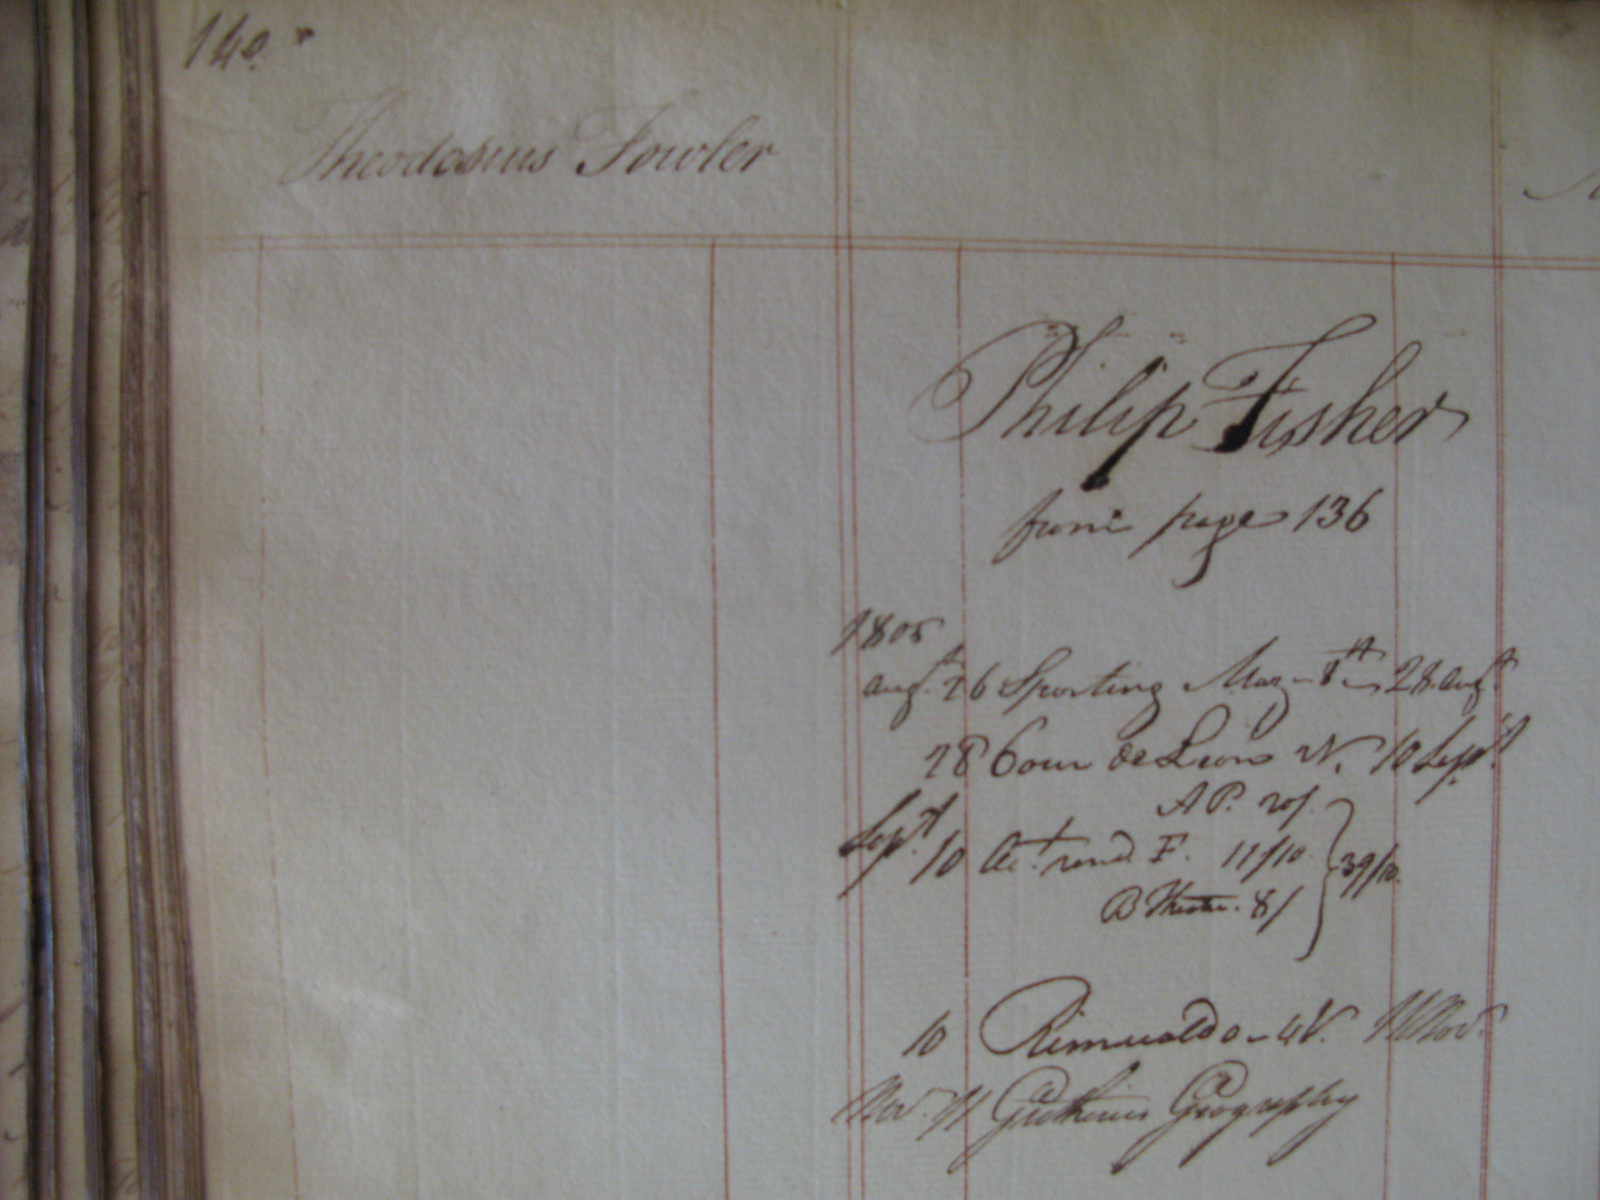 140
Theodosius Fowler
Philip Fisher
from page 136
1805
Augt. 26 Sporting Mag - 8th 28 Augt.
28 Cour de Leon 2 V. 10 Sept.
A P. 20/.
Sept. 10 Act rend. F. 11/10 39/10
B Theatre. 8/
10 Rimualdo - 4 V. 11 Nov.
Nov. 11 Guthries Geography